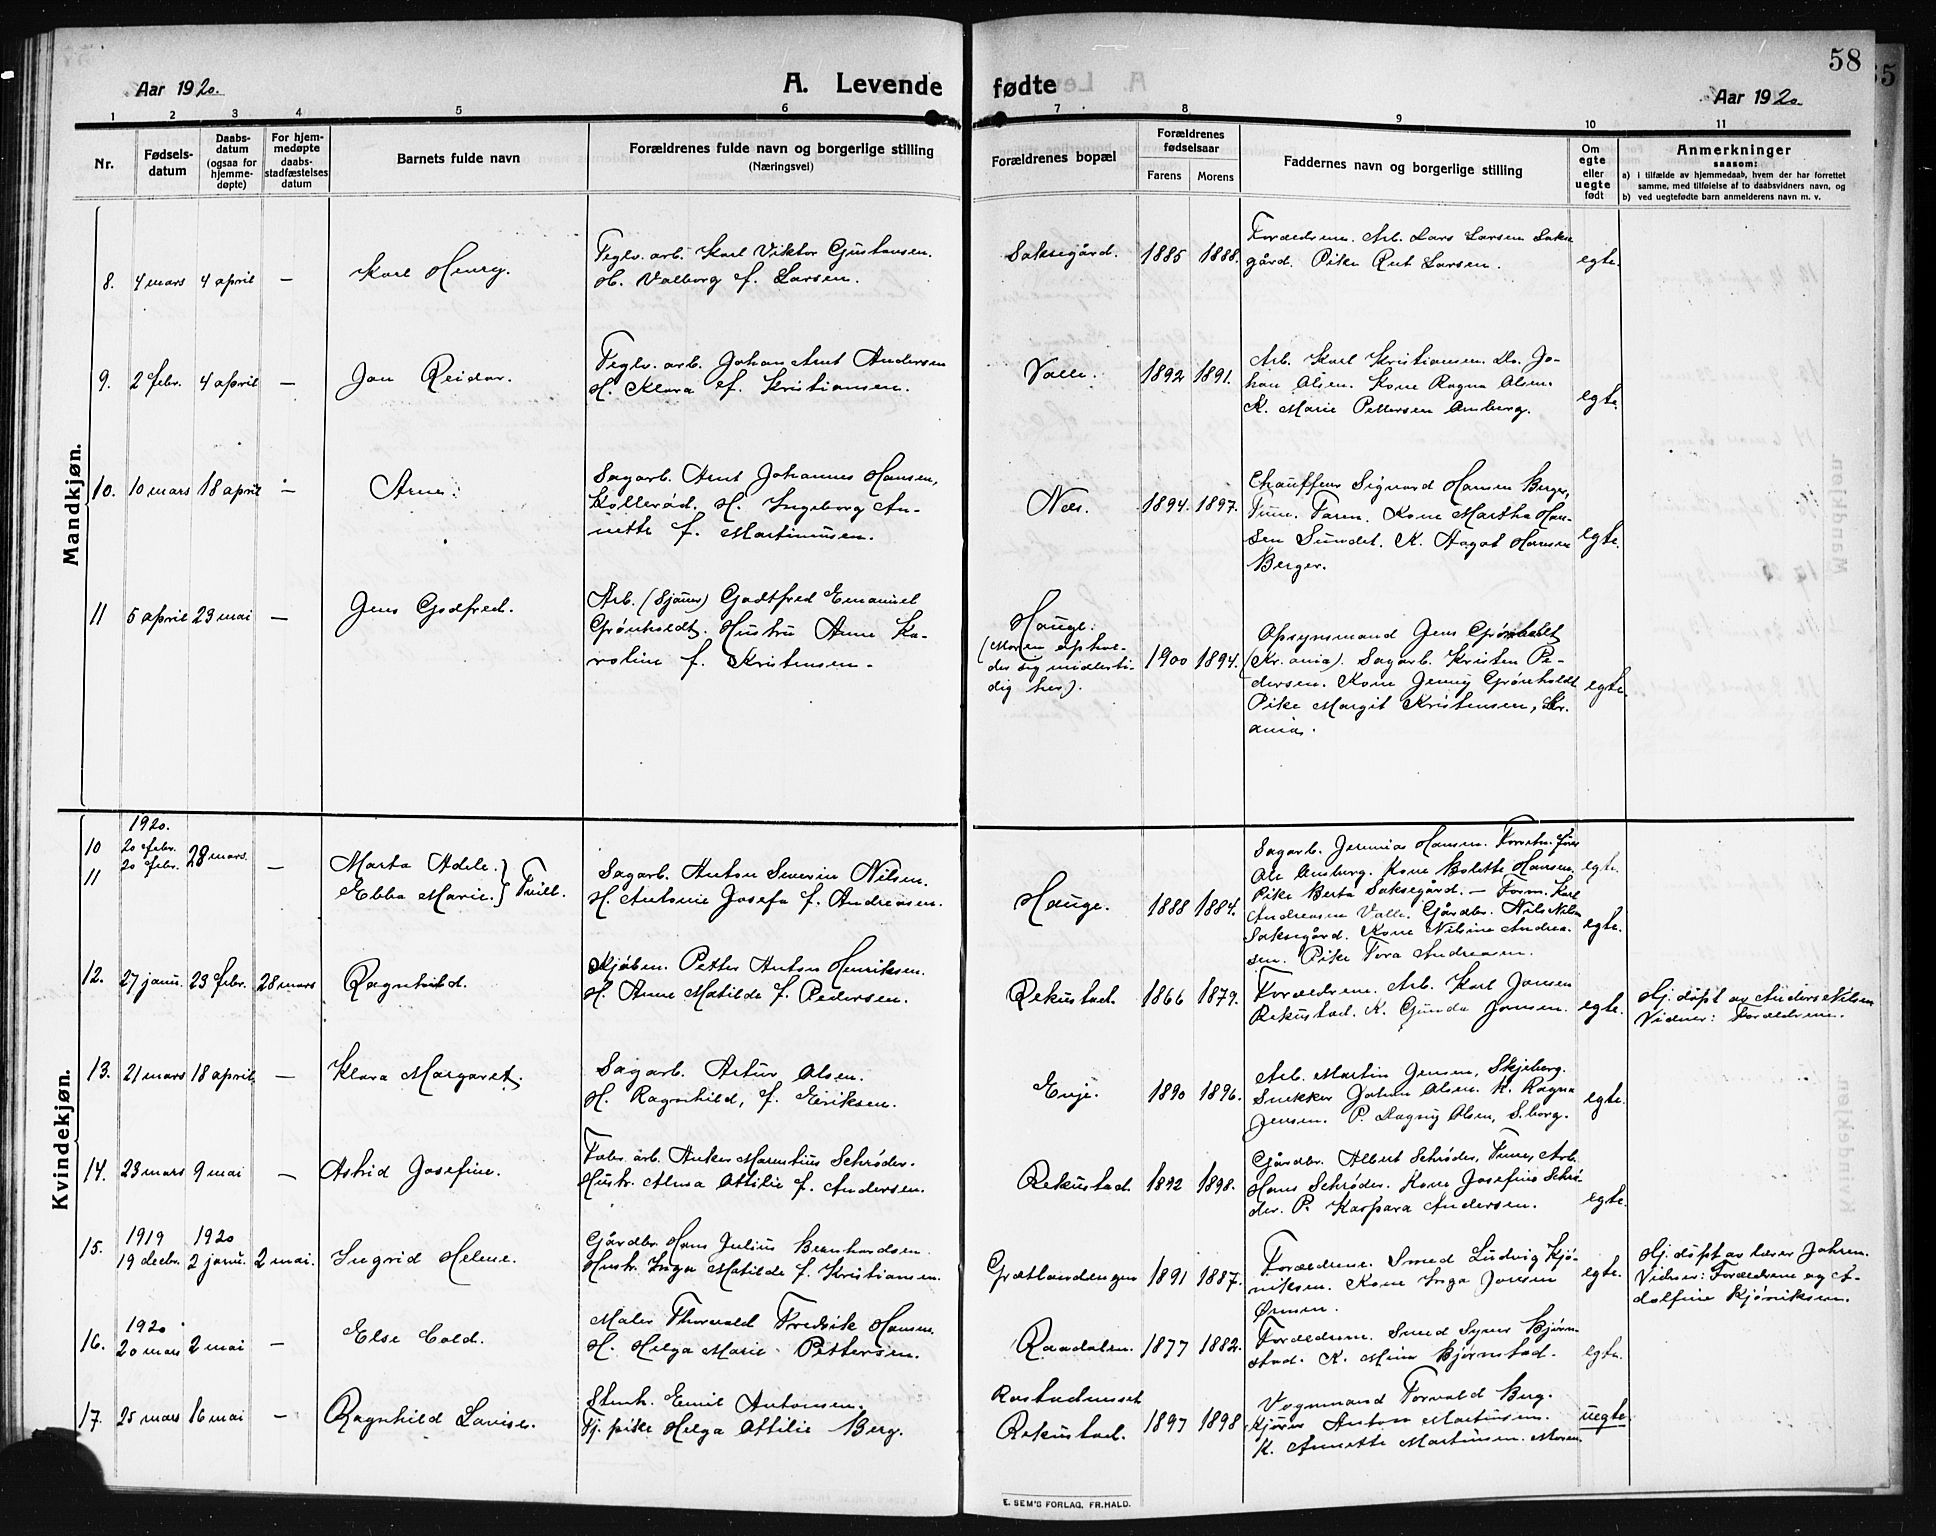 58
Aar 1920.
A. Levende fødte
Aar 1920
1 2 3 4 5 6 7 8 9 10 11
Nr.
Fødsels-
datum
Daabs-
datum
(ogsaa for
hjemme-
døpte)
For hjem-
medøpte
daabs-
stadfæstelses
datum
Barnets fulde navn
Forældrenes fulde navn og borgerlige stilling
(Næringsvei)
Forældrenes bopæl
Forældrenes
fødselsaar
Farens Morens
Faddernes navn og borgerlige stilling
Om
egte
eller
uegte
født
Anmerkninger
saasom:
a) i tilfælde av hjemmedaab, hvem der har forrettet
samme, med tilføielse af to daabsvidners navn, og
b) ved uegtefødte barn anmelderens navn m. v.
Mandkjøn.
8. 4 mars 4 april — Karl Henry.
Teglv. arb. Karl Viktor Gustavsen.
H. Valborg f. Larsen.
Saksegård. 1885 1888.
Forældrene. Arb. Lars Larsen Sakse
gård. Pike Rut Larsen.
egte.
9. 2 febr. 4 april — Jan Reidar.
Teglv. arb. Johan Arnt Andersen
H. Klara f. Kristiansen.
Valle. 1892 1891.
Arb. Karl Kristiansen. Do. Jo-
han Olsen. Kone Ragna Olsen.
K. Marie Pettersen Amberg.
egte.
10. 10 mars 18 april — Arne.
Sagarb. Arnt Johannes Hansen,
Kollerød. H. Ingeborg An-
nette f. Martinusen.
Næs. 1894. 1897.
Chauffeur Sigvard Hansen Berger,
Tune. Faren. Kone Martha Han-
sen Sundet. K. Aagot Hansen
Berger.
egte.
11 5 april 23 mai — Jens Godfred.
Arb. (Sjauer) Godtfred Emanuel
Grønholdt. Hustru Anne Ka-
roline f. Kristensen.
Hauge.
(Moren ophol-
der sig midlerti-
dig her).
1900 1894.
Opsynsmand Jens Grønholdt
(Kr.ania). Sagarb. Kristen Pe-
dersen. Kone Jenny Grønholdt
Pike Margit Kristensen, Kr.
ania.
egte.
Kvindekjøn.
1920.
10 20 febr. 28 mars. — Marta Adele. } Tvill.
11 20 febr. Ebba Marie. }
Sagarb. Anton Severin Nilsen.
H. Antonie Josefa f. Andreasen.
Hauge. 1888 1884.
Sagarb. Jeremias Hansen.
Ole Amberg. Kone Bolette Hansen.
Pike Berta Saksegård. — Form. Karl
Andreasen Valle. Gårdbr. Nils Nilsen
Saksegård. Kone Nilsine Andrea-
sen. Pike Tora Andreasen.
egte.
egte.
12. 27 janu. 23 febr. 28 mars Ragnhild.
Kjøbm. Petter Anton Henriksen.
H. Anne Matilde f. Pedersen.
Rekustad. 1866 1879.
Forældrene. Arb. Karl Jansen
Rekustad. K. Gunda Jansen.
egte.
Hj. døpt av Anders Nilsen
Vidner: Forældrene.
13. 21 mars 18 april — Klara Margaret.
Sagarb. Artur Olsen.
H. Ragnhild, f. Eriksen.
Enje. 1890 1896.
Arb. Martin Jensen, Skjeberg.
Snekker Johan Olsen. K. Ragna
Jensen. P. Dagny Olsen, S.borg.
egte.
14. 23 mars 9 mai — Astrid Josefine.
Fabr. arb. Anker Marentius Schrøder.
Hustr. Alma Ottilie f. Andersen.
Rekustad. 1892 1898.
Gårdbr. Albert Schrøder, Tune, Arb.
Hans Schrøder. Kone Josefine Schrø-
der. P. Kaspara Andersen.
egte.
1919 1920
15. 19 decbr. 2 janu. 2 mai. Ingrid Helene.
Gårdbr. Hans Julius Bernhardsen.
Hustr. Inga Matilde f. Kristiansen.
Grætlandengen 1891 1887.
Forældrene. Smed Ludvig Kjø-
niksen. Kone Inga Jansen
egte.
Hj. døpt av lærer Johren.
Vidner: Forældrene og A-
dolfine Kjøniksen.
1920
16. 20 mars 2 mai — Else Cold.
Maler Thorvald Fredrik Hansen
H. Helga Marie Pettersen.
Raadalen. 1877 1882.
Forældrene. Smed Syver Bjørn-
stad. K. Mina Bjørnstad.
egte.
17. 25 mars 16 mai — Ragnhild Lovise.
Stenh. Emil Antonsen.
Tj. pike Helga Ottilie Berg.
Rostadmoset
Rekustad.
1897 1898
Vognmand Torvald Berg.
Kjører Anton Martinsen.
K. Annette Martinsen. Moren.
uegte
E. SEM'S FORLAG, FR.HALD.